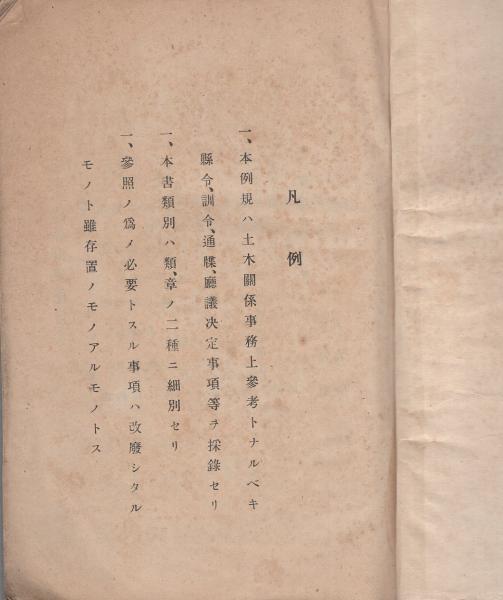 凡例
一、本例規ハ土木關係事務上參考トナルベキ
縣令、訓令、通牒、廳議決定事項等ヲ採錄セリ
一、本書類別ハ類、章ノ二種ニ細別セリ
一、參照ノ爲メ必要トスル事項ハ改廢シタル
モノト雖存置ノモノアルモノトス